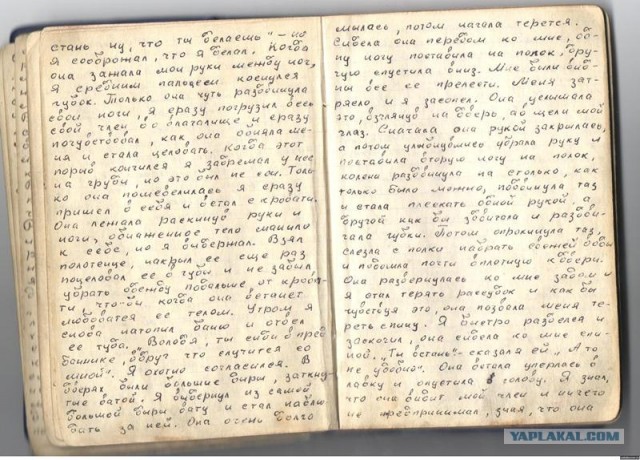 стань ну, что ты делаешь" – но
я соображал, что я делал. Когда
она зажала мои руки между ног,
я средним пальцем коснулся
губок. Только она чуть раздвинула
свои ноги, я сразу погрузил весь
свой член во влагалище и сразу
почувствовал, как она обняла ме-
ня и стала целовать. Когда этот
порыв кончился я задремал у нее
на груди, но это был не сон. Толь-
ко она пошевелилась я сразу
пришел в себя и встал с кровати.
Она лежала раскинув руки и
ноги, обнаженное тело манило
к себе, но я выдержал. Взял
полотенце, накрыл ее еще раз
поцеловал ее в губы и не забыл
убрать одежду подальше, от крова-
ти, что-бы когда она встанет
любоватся ее телом. Утром я
снова натопил баню и отвел
ее туда. "Володя, ты сиди в пред-
баннике, вдруг что случится со
мной". Я охотно согласился. В
дверях были большие дыры, заткну-
тые ватой. Я выдернул из самой
большой дыры вату и стал наблю-
дать за ней. Она очень долго
мылась, потом начала терется.
Сидела она передом ко мне, од-
ну ногу поставила на полок, дру-
гую спустила вниз. Мне были вид-
ны все ее прелести. Меня зат-
рясло и я застонал. Она услышала
это, взглянув на дверь, до щели мой
глаз. Сначала она рукой закрылась,
а потом улыбнувшись убрала руку и
поставила вторую ногу на полок,
колени раздвинула на столько, как
только было можно, подвинула таз
и стала плескать одной рукой, а
другой как бы
губки. Потом опрокинула таз,
слезла с полки набрать свежей воды
и подошла почти вплотную к двери.
Она развернулась ко мне задом и
я стал терять рассудок и как бы
чувствуя это, она позвала меня те-
реть спину. Я быстро разделся и
заскочил, она сидела ко мне спи-
ной. "Ты встань" – сказал я ей, "А то
не удобно". Она встала уперлась в
лавку и опустила голову. Я знал,
что она видит мой член и ничего
не предпринимал, зная, что она
YAPLAKAL.COM